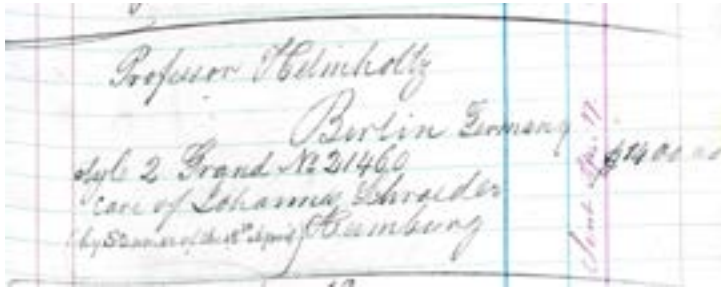 Professor Helmholtz
Berlin Germany
Style 2 Grand No 21460
$1400.00
care of Johannes Schroeder
(by Steamer of the 18th April) Hamburg
Sent Apr. 17.